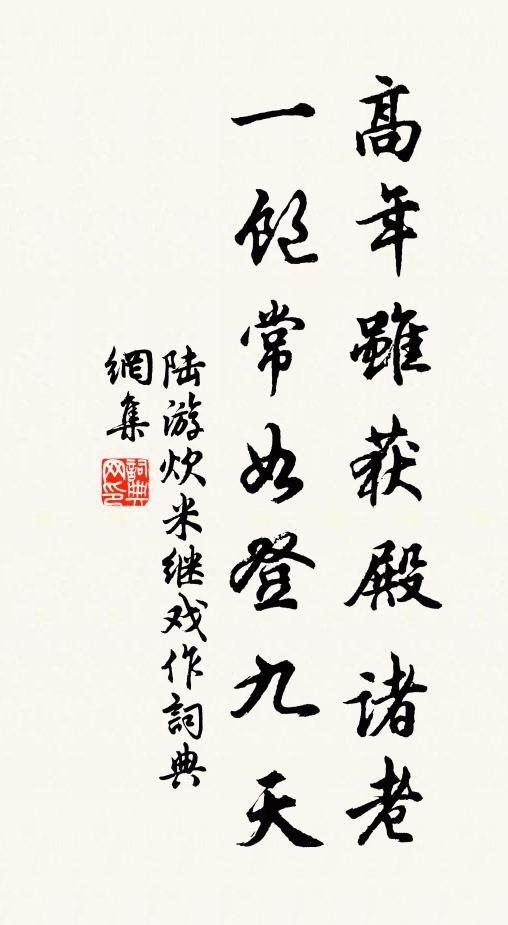 高年雖获殿诸老
一饱常如登九天
陆游炊米继戏作詞典
網集
詞典网印